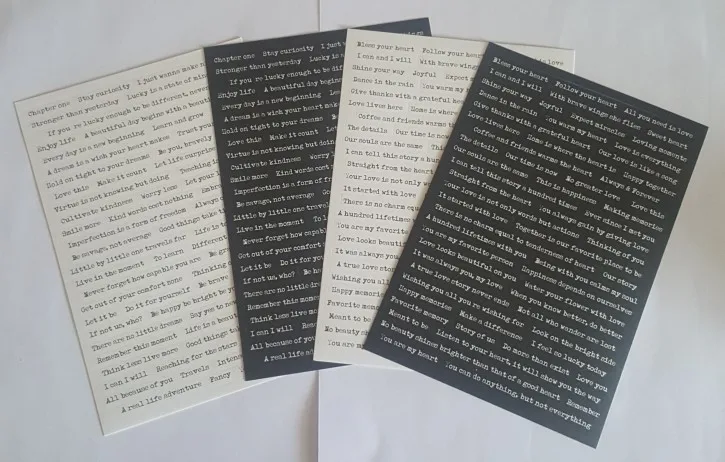 Chapter one Stay curiosity I just wanna make
Stronger than yesterday Lucky is a state of min
If you're lucky enough to be different, never
Enjoy life A beautiful day begins with a beauti
Every day is a new beginning Learn and grow
A dream is a wish your heart makes Trust you
Hold on tight to your dreams Be you, bravely
Love this Make it count Let life surpris
Virtue is not knowing but doing Teaching i
Cultivate kindness Worry less Let your
Smile more Kind words cost nothing Embra
Imperfection is a form of freedom Always
Be savage, not average Good things take t
Little by little one travels far Life is t
Live in the moment To learn Different
Never forget how capable you are Be gr
Get out of your comfort zone Thinking o
Let it be Do it for yourself Be brave
If not us, who? Be happy be bright be y
There are no little dreams Say yes to new
Remember this moment Life is a beau
Think less live more Good things
I can I will Reaching for the stars
All because of you Travels Intense
A real life adventure Fancy
Chapter one Stay curiosity I jus
Stronger than yesterday Lucky is a
If you're lucky enough to be diff
Enjoy life A beautiful day begins
Every day is a new beginning Lea
A dream is a wish your heart make
Hold on tight to your dreams Be
Love this Make it count L
Virtue is not knowing but doing
Cultivate kindness Worry
Smile more Kind words cost no
Imperfection is a form of fr
Be savage, not average Good
Little by little one travels f
Live in the moment To l
Never forget how capable
Get out of your comfort
Let it be Do it for you
If not us, who? Be ha
There are no little dre
Remember this moment
Think less live more
I can I will Reac
All because of you
A real life ad
Bless your heart Follow your heart
I can and I will With brave wings
Shine your way Joyful Expect
Dance in the rain You warm my
Give thanks with a grateful hear
Love lives here Home is where
Coffee and friends warm the
The details Our time is now
Our souls are the same This
I can tell this story a hun
Straight from the heart
Your love is not only
It started with love
There is no charm equa
A hundred lifetimes
You are my favorite
Love looks beautifu
It was always you
A true love story
Wishing you all
Happy memories
Favorite memor
Meant to be
No beauty shine
You are my
Bless your heart Follow your heart All you need is love
I can and I will With brave wings she flies Sweet heart
Shine your way Joyful Expect miracles Loving moments
Dance in the rain You warm my heart Love is everything
Give thanks with a grateful heart Our love is like a song
Love lives here Home is where the heart is Happy together
Coffee and friends warm the heart Always & Forever
The details Our time is now No greater love Love this
Our souls are the same This is happiness Making memories
I can tell this story a hundred times Ever since I met you
Straight from the heart You always gain by giving love
Your love is not only words but actions Thinking of you
It started with love Together is our favorite place to be
There is no charm equal to tenderness of heart Our story
A hundred lifetimes with you Being with you calms my soul
You are my favorite person Happiness depends on ourselves
Love looks beautiful on you Water your flower with love
It was always you, my love When you know better, do better
A true love story never ends Not all who wander are lost
Wishing you all you're wishing for Look on the bright side
Happy memories Make a difference I feel so lucky today
Favorite memory Story of us Do more than exist Love you
Meant to be Listen to your heart, it will show you the way
No beauty shines brighter than that of a good heart Remember
You are my heart You can do anything, but not everything